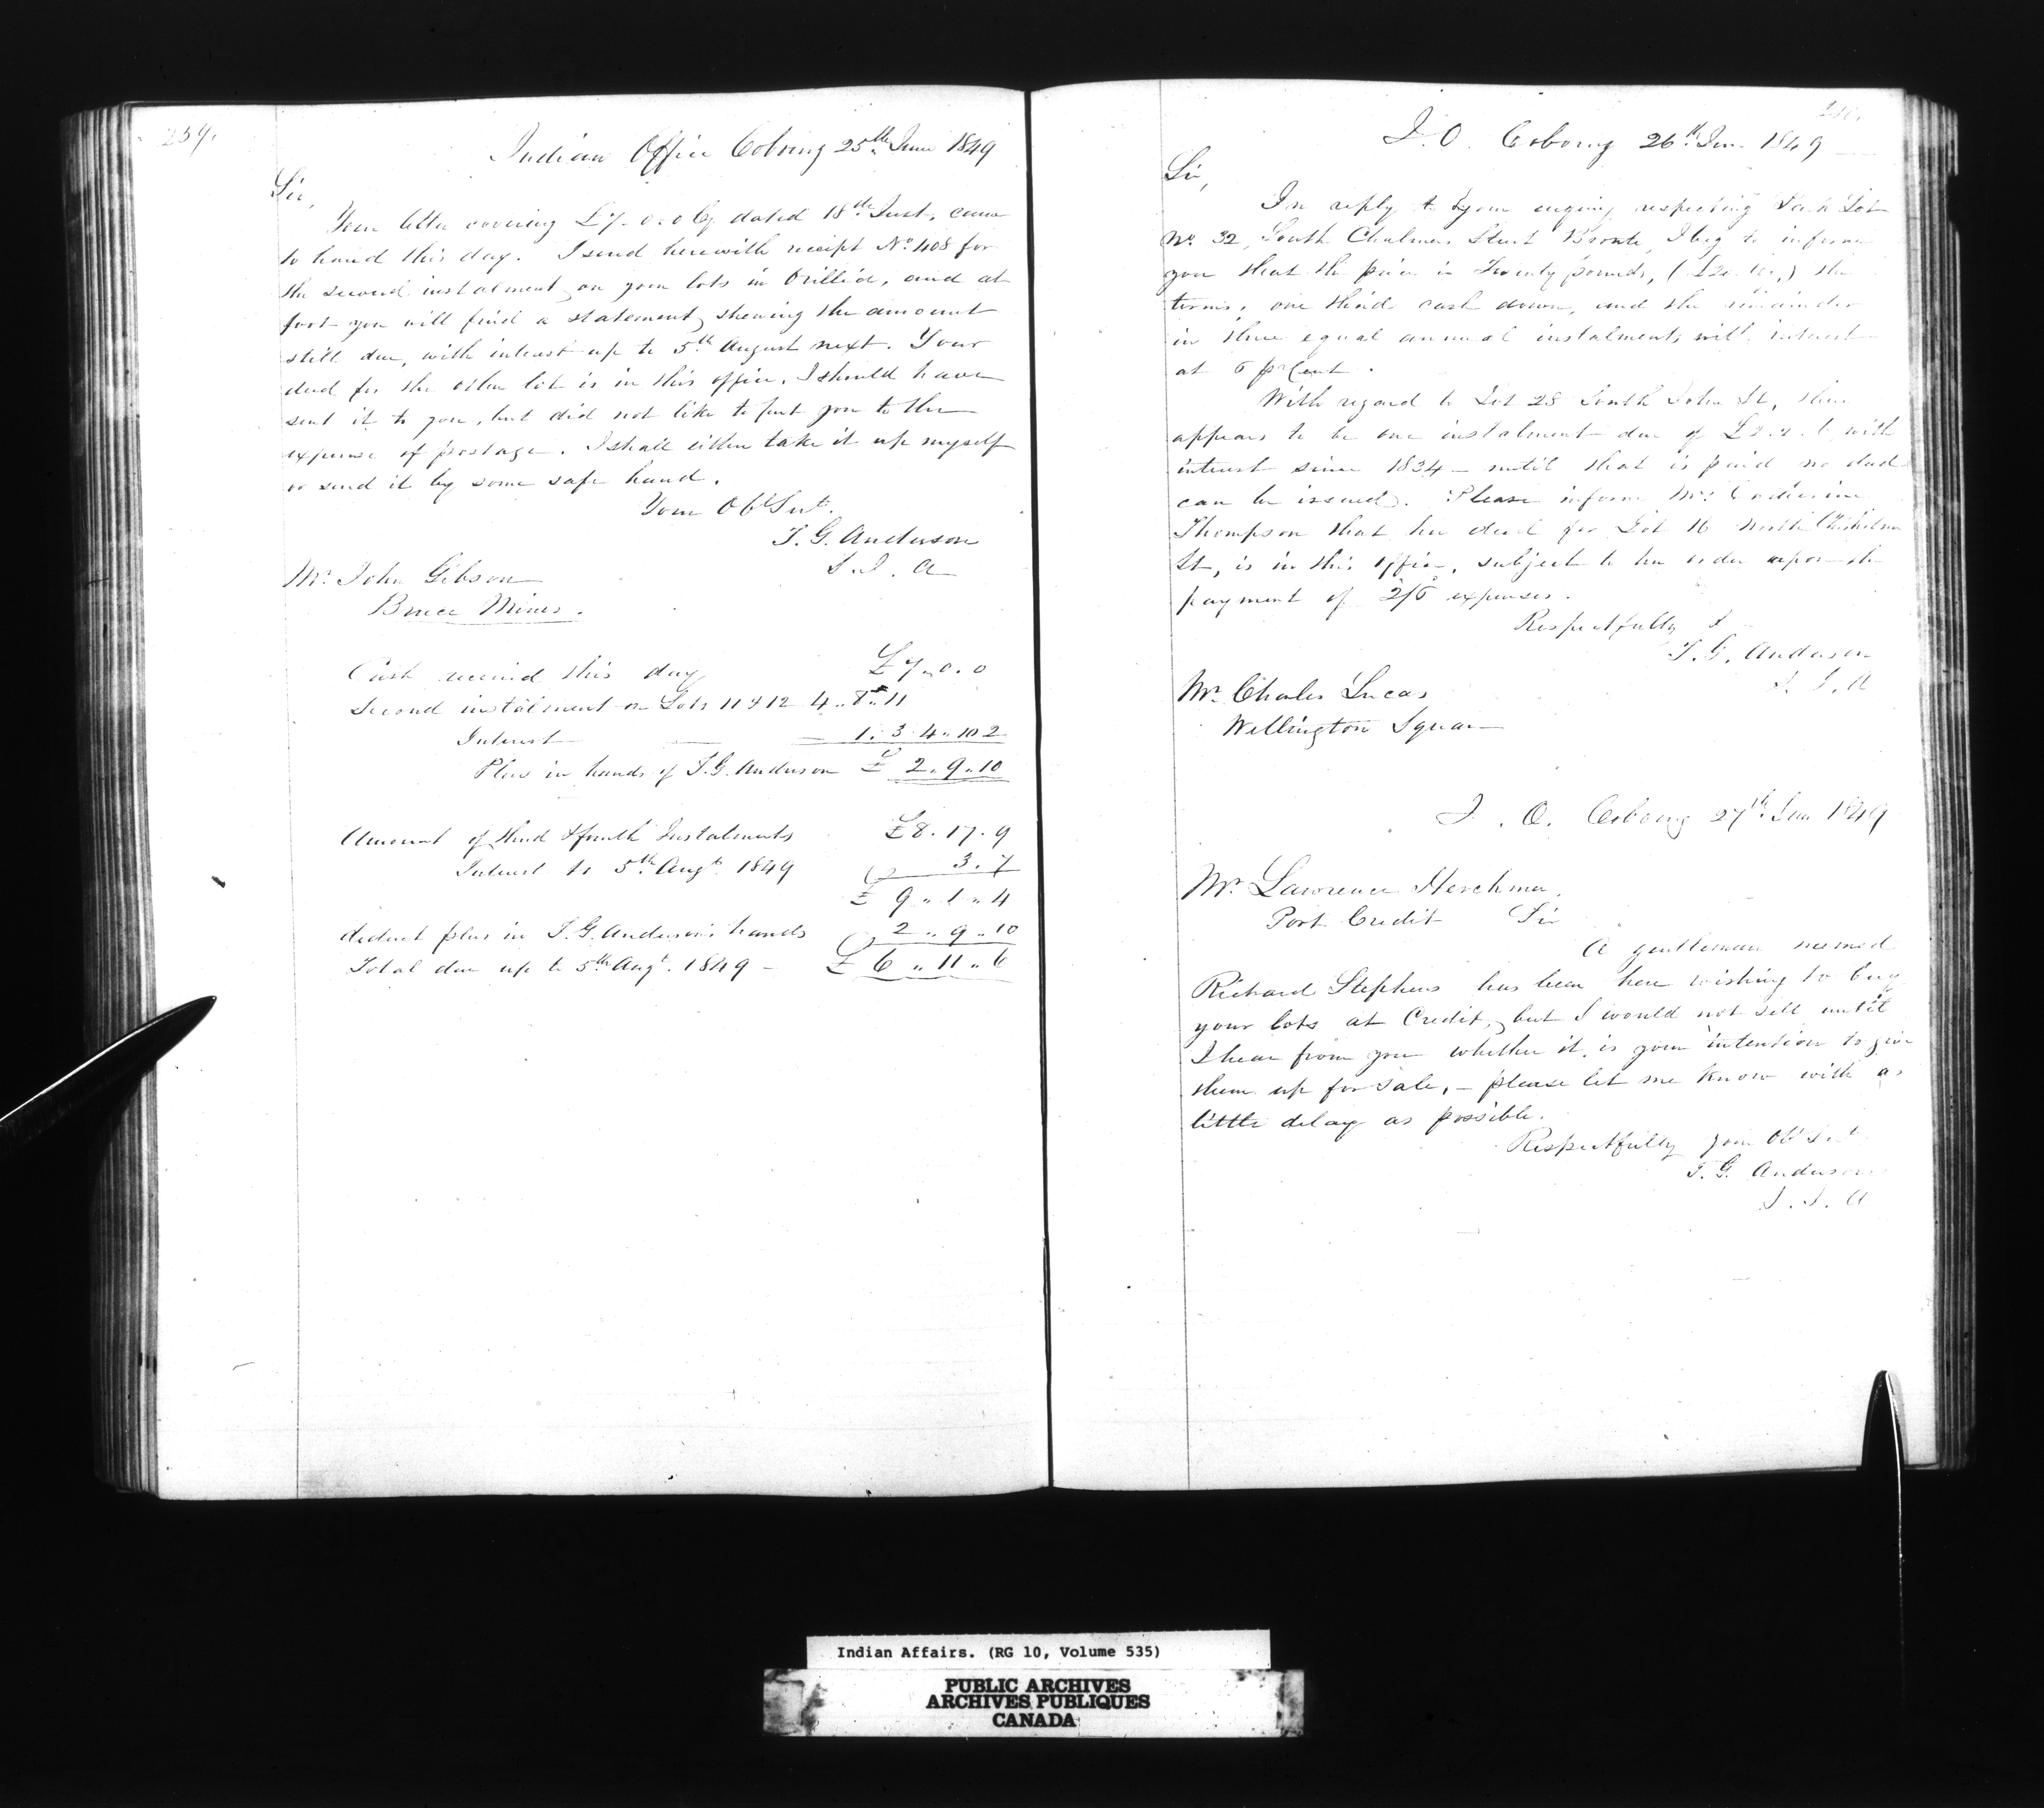 239.
Indian Office Cobourg 25th June 1849
Sir,
Your letter covering £7.0.0 Cy dated 18th Inst. came
to hand this day. I send herewith receipt No. 408 for
the second instalment on your lots in Orillia, and at
foot you will find a statement shewing the amount
still due, with interest up to 5th August next. Your
deed for the other lot is in this office. I should have
sent it to you, but did not like to put you to the
expense of postage. I shall either take it up myself
or send it by some safe hand.
Your Obt Svt.
T. G. Anderson
S. I. A
Mr. John Gibson
Bruce Mines.
Cash received this day £7.0.0
Second instalment on Lots 11 & 12 4.. 8.. 11
Interest 1. 3 4.. 10 2
Plus in hands of T. G. Anderson £ 2.. 9.. 10
Amount of third & fourth Instalments £8. 17. 9
Interest to 5th Augt. 1849 3. 7
£ 9.. 1.. 4
deduct plus in T. G. Anderson's hands 2.. 9.. 10
Total due up to 5th Augt. 1849 - £ 6.. 11.. 6
240.
I. O. Cobourg 26th June 1849
Sir,
In reply to your enquiry respecting Park Lot
No. 32, South Chalmers Street Bronte, I beg to inform
you that the price is Twenty pounds, the
terms, one third cash down, and the remainder
in three equal annual instalments with interest
at 6 pr Cent.
With regard to Lot 28 South John St, there
appears to be one instalment due of with
interest since 1834 - until that is paid no deed
can be issued. Please inform Mrs Catherine
Thompson that her deed for Lot 16 North Chisholm
St, is in this office, subject to her order upon the
payment of 2/6 expenses.
Respectfully
T. G. Anderson
S. I. A
Mr. Charles Lucas
Wellington Square
I. O. Cobourg 27th June 1849
Mr. Lawrence Herchmer,
Port Credit Sir
A gentleman named
Richard Stephens has been here wishing to buy
your lots at Credit, but I would not sell until
I hear from you whether it is your intention to give
them up for sale, - please let me know with as
little delay as possible.
Respectfully your Obt Svt
T. G. Anderson
S. I. A
Indian Affairs. (RG 10, Volume 535)
PUBLIC ARCHIVES
ARCHIVES PUBLIQUES
CANADA